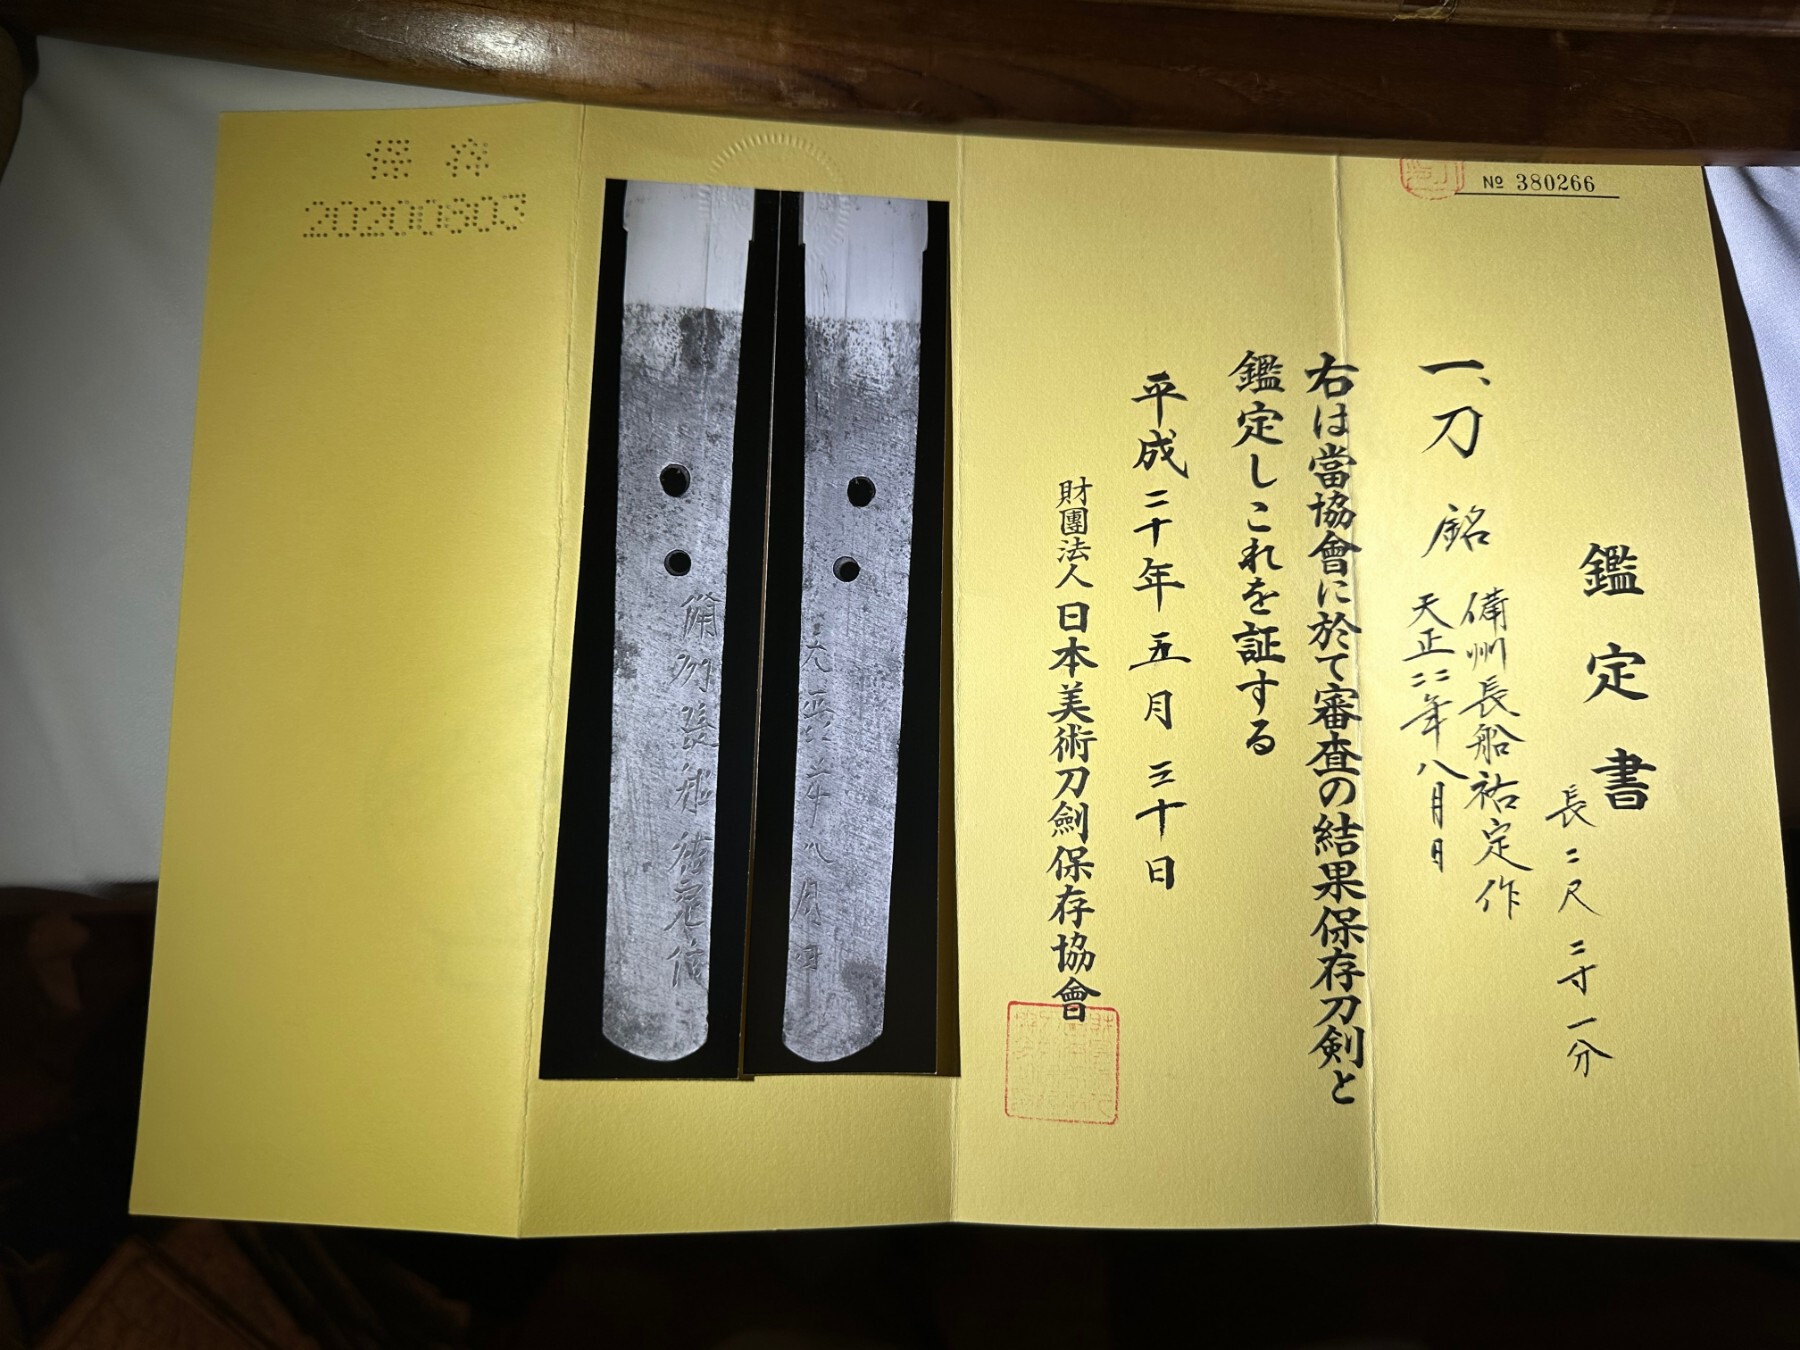 № 380266
鑑定書
長二尺二寸一分
一、刀 銘 備州長船祐定作
天正二二年八月日
右は當協會に於て審査の結果保存刀剣と
鑑定しこれを証する
平成二十年五月三十日
財團法人日本美術刀劍保存協會
保存
20200803